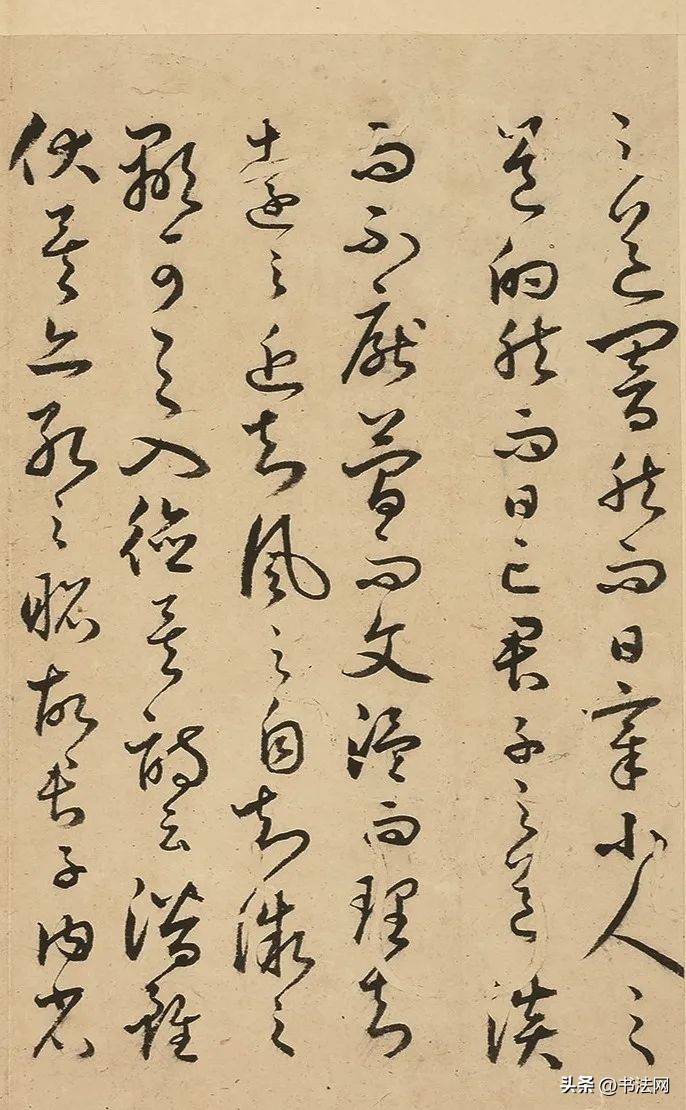 之道闇然而日章小人之
道的然而日亡君子之道淡
而不厭簡而文溫而理知
遠之近知風之自知微之
顯可與入德矣詩云潛雖
伏矣亦孔之昭故君子內省
头条 @书法网